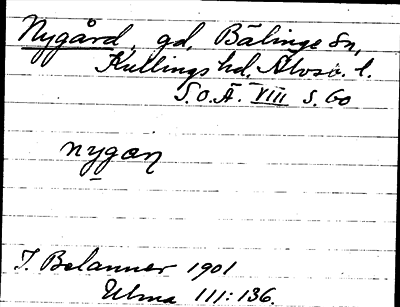 Nygård, gd, Bälinge sn,
Kullings hd, Älvsb. l.
S.O.Ä. VIII s. 60
nygaŋ
J. Belanner 1901
Ulma 111:136.